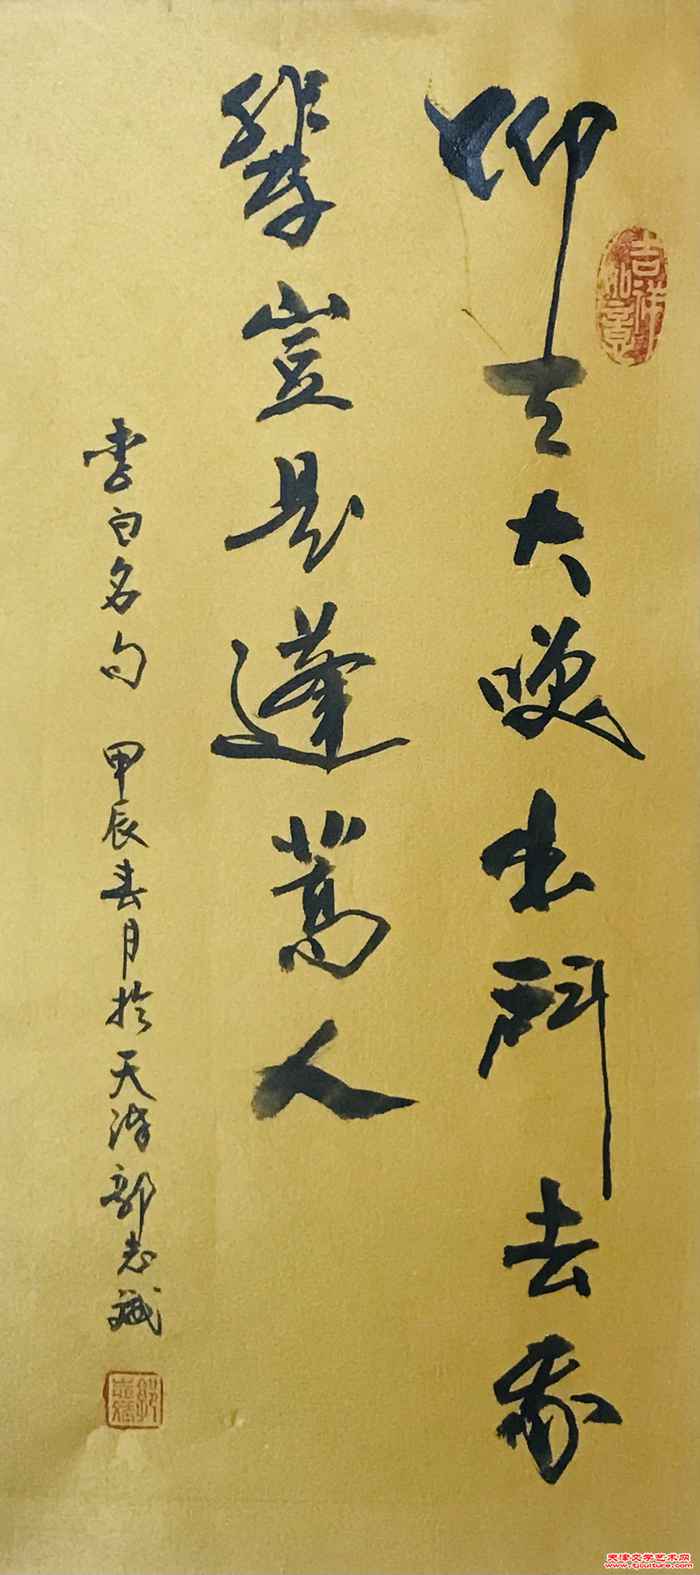 吉祥如意
仰天大咲出門去我
輩豈是蓬蒿人
李白名句 甲辰春月於天津郭志斌
天津文学艺术网
www.tjculture.com